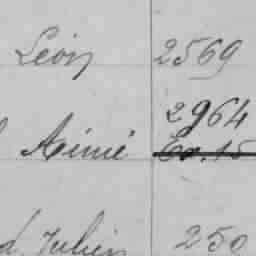 Léon 2569
2964
Aimé Ex. 15
d, Julien 250